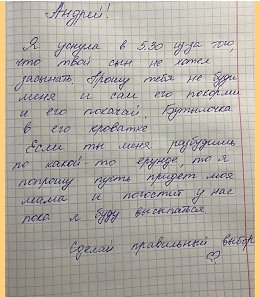 Андрей!
Я уснула в 5:30 из-за того,
что твой сын не хотел
засыпать. Прошу тебя не буди
меня и сам его покорми
и его покачай. Бутылочка
в его кроватке
Если ты меня разбудишь
по какой-то ерунде, то я
попрошу пусть придет моя
мама и погостит у нас
пока я буду высыпаться
Сделай правильный выбор